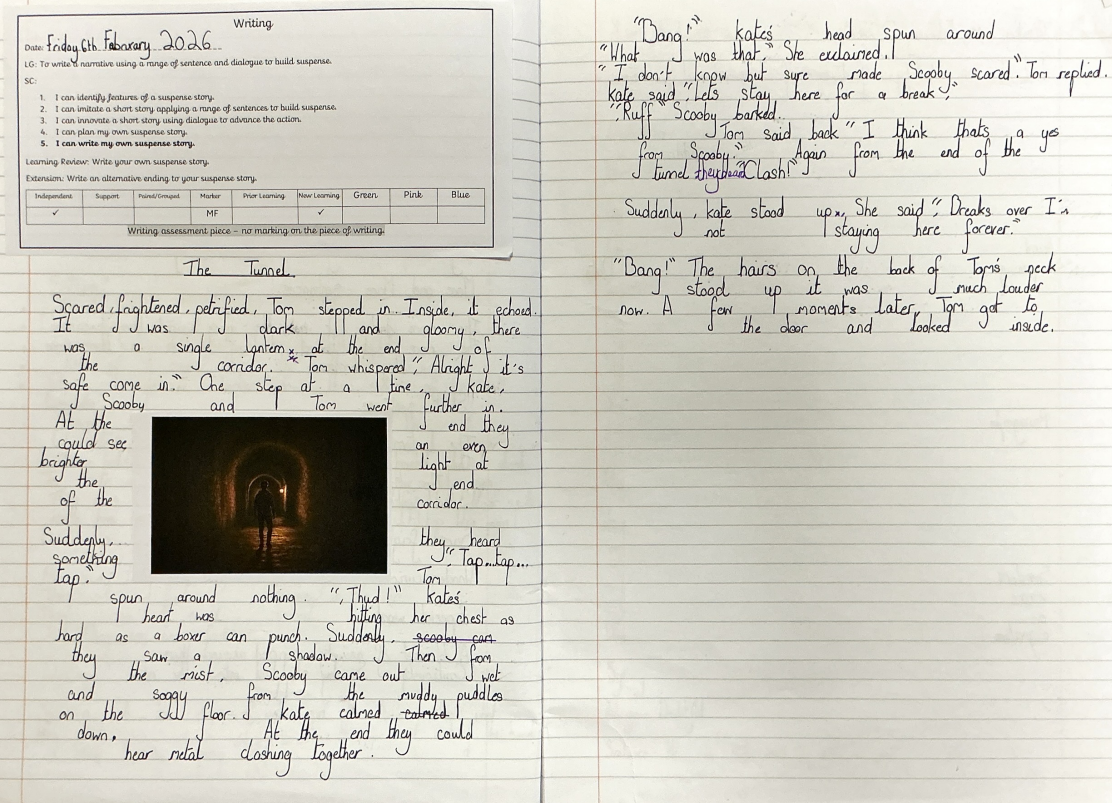 Writing
Date: Friday 6th Febarary 2026
LG: To write a narrative using a range of sentence and dialogue to build suspense.
SC:
1. I can identify features of a suspense story.
2. I can imitate a short story applying a range of sentences to build suspense.
3. I can innovate a short story using dialogue to advance the action.
4. I can plan my own suspense story.
5. I can write my own suspense story.
Learning Review: Write your own suspense story.
Extension: Write an alternative ending to your suspense story.
Independent Support Paired/Grouped Marker Prior Learning New Learning Green Pink Blue
✓ MF ✓
Writing assessment piece – no marking on the piece of writing.
The Tunnel
Scared, frightened, petrified, Tom stepped in. Inside, it echoed.
It was dark and gloomy, there
was a single lantern at the end of
the corridor. Tom whispered, "Alright it's
safe come in." One step at a time, kate,
Scooby and Tom went further in.
At the end they
could see an even
brighter light at
the end
of the corridor.
Suddenly, they heard
something "Tap...tap...
tap." Tom
spun around nothing. "Thud!" kate's
heart was hitting her chest as
hard as a boxer can punch. Suddenly, scooby can
they saw a shadow. Then from
the mist, Scooby came out wet
and soggy from the muddy puddles
on the floor. kate calmed calmed
down. At the end they could
hear metal clashing together.
"Bang!" kate's head spun around
"What was that." She exclaimed!
"I don't know but sure made Scooby scared". Tom replied.
kate said "Lets stay here for a break,"
"Ruff" Scooby barked.
Tom said back "I think thats a yes
from Scooby." Again from the end of the
tunnel they heard "Clash!"
Suddenly, kate stood up, She said, "Breaks over I'm
not staying here forever."
"Bang!" The hairs on the back of Tom's neck
stood up it was much louder
now. A few moments later, Tom got to
the door and looked inside.